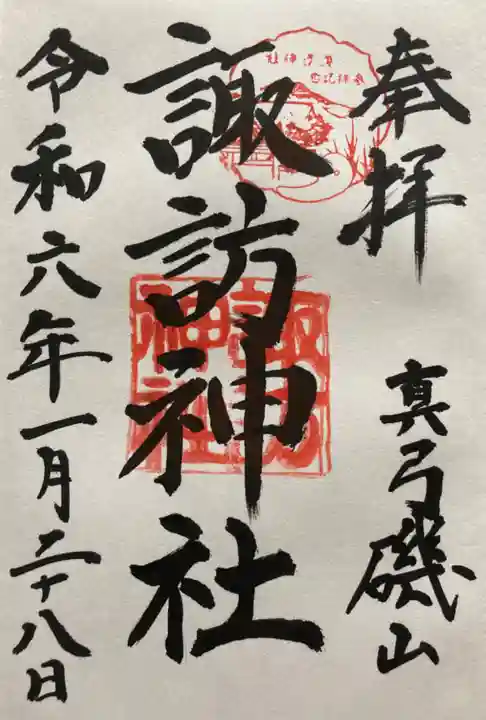 奉拝
真弓磯山
諏訪神社
諏訪神社
令和六年一月二十八日